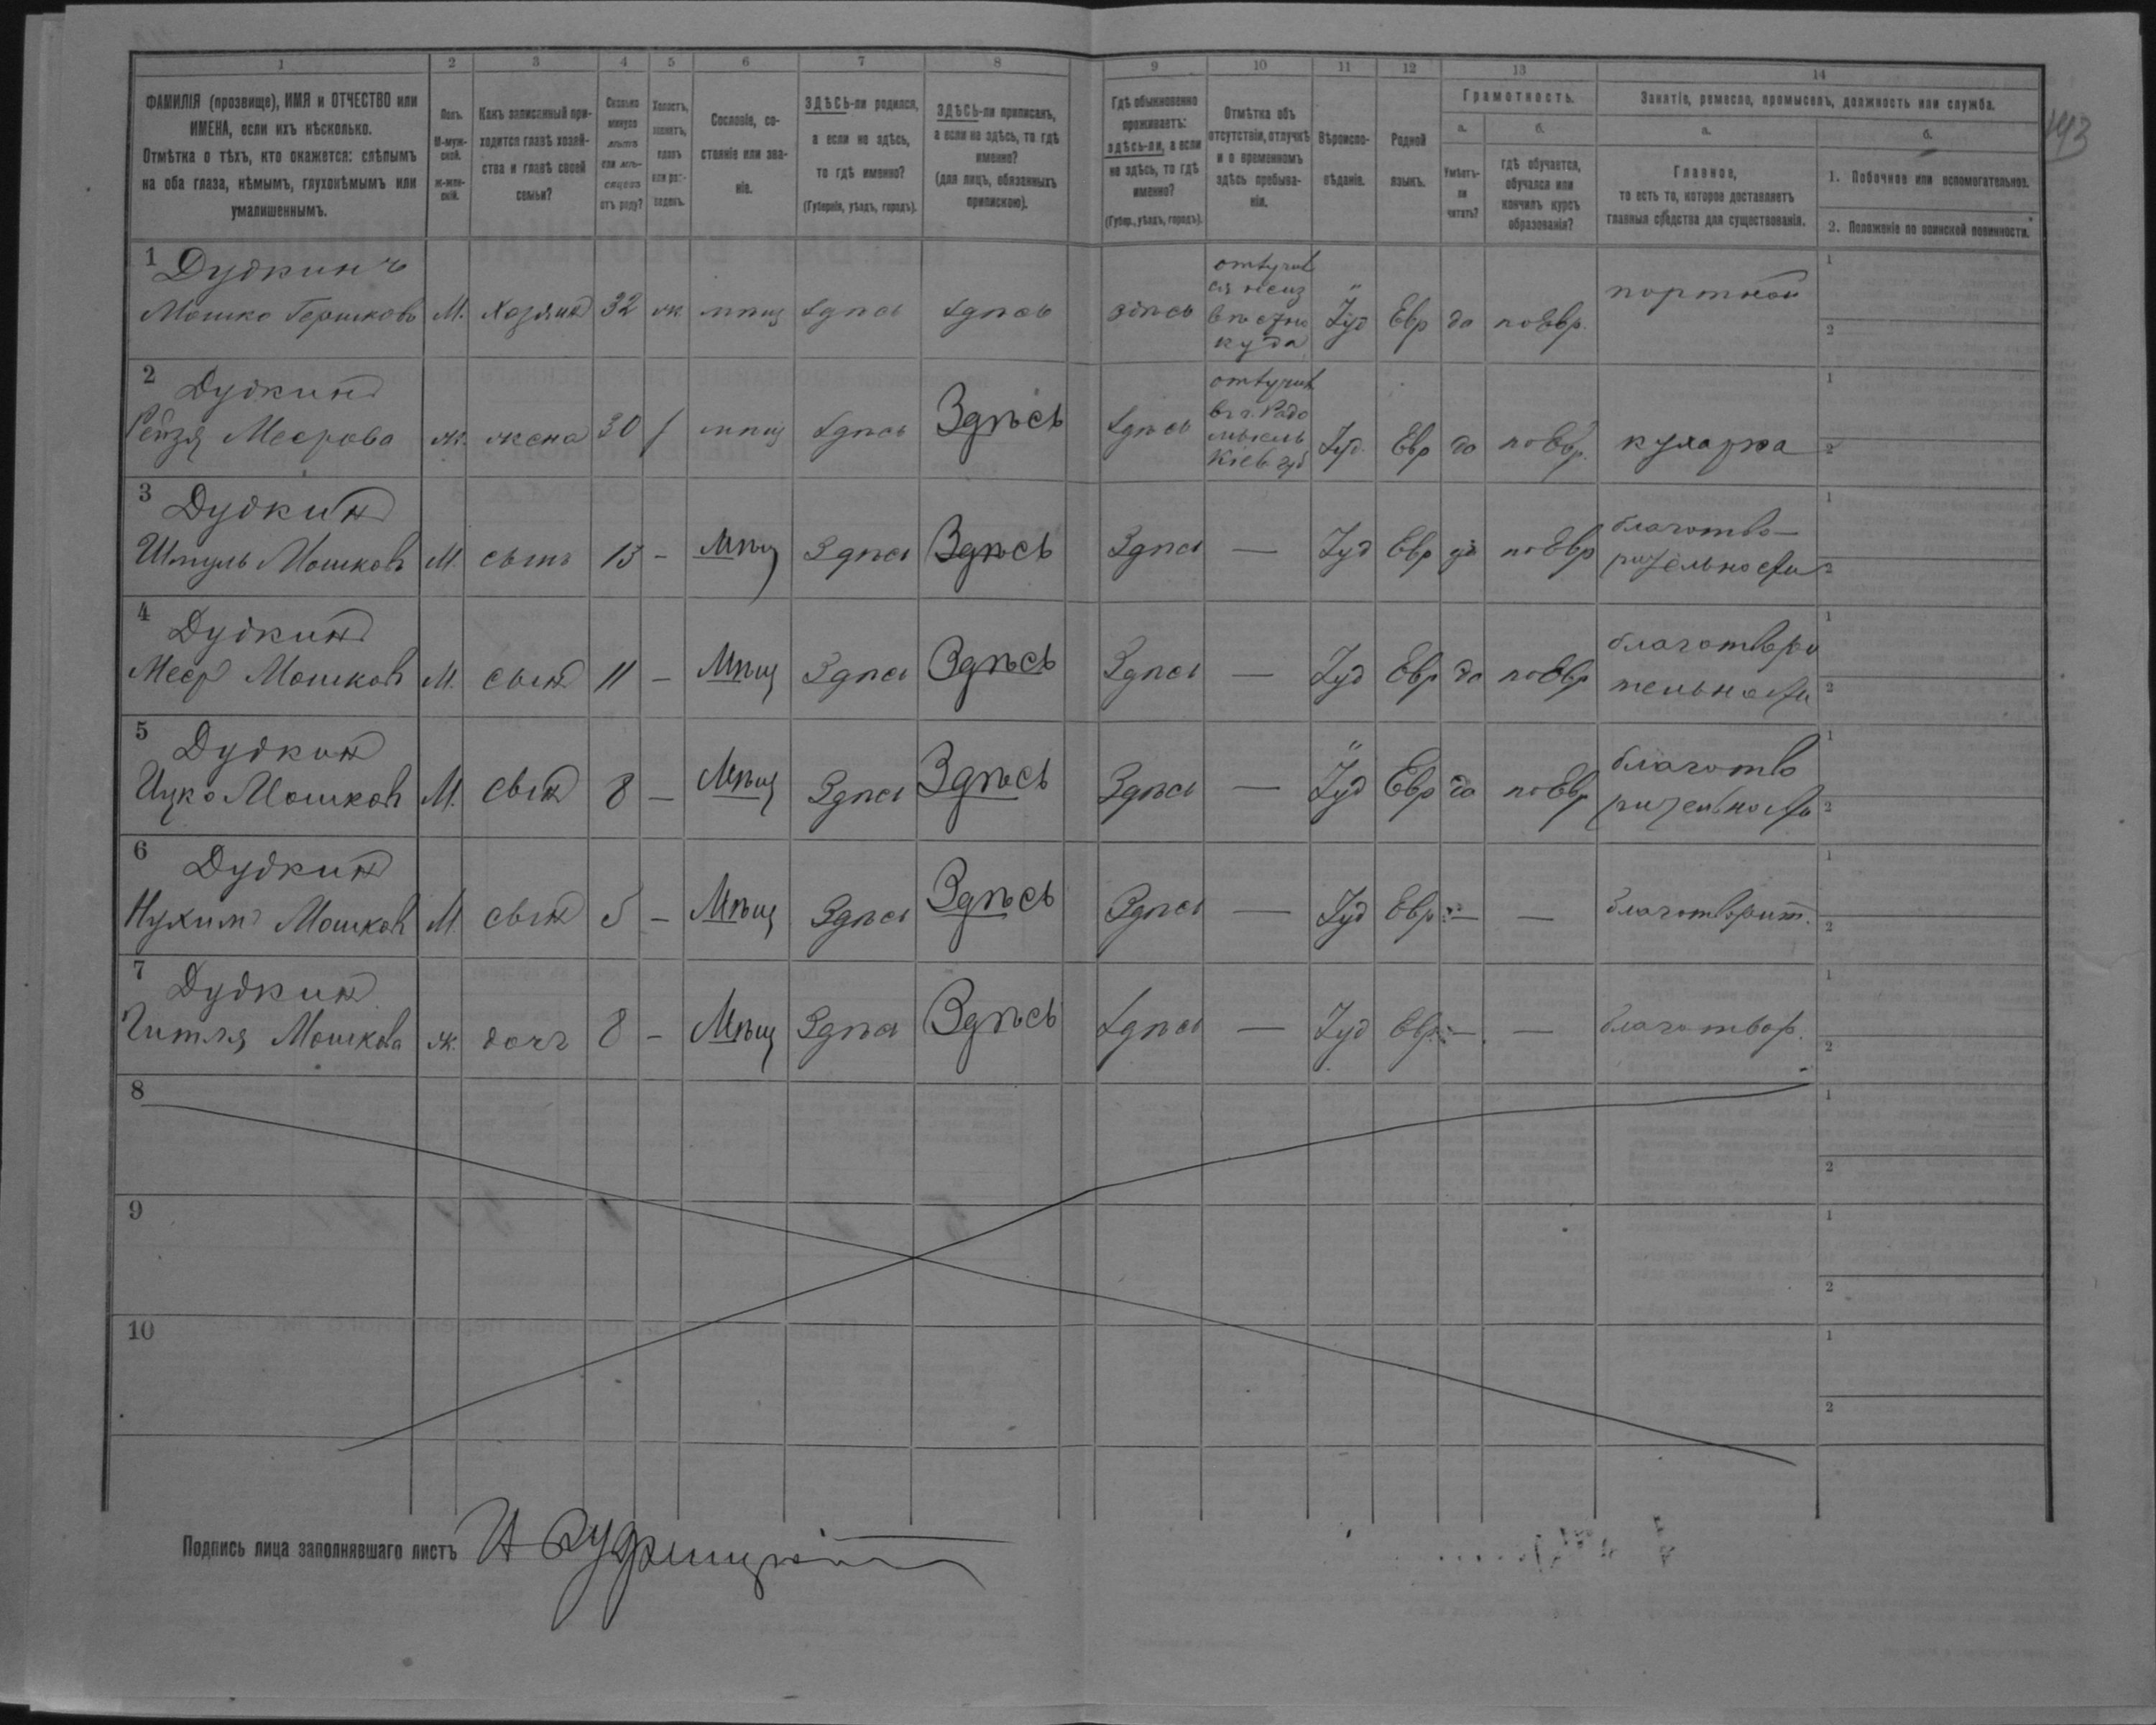 193
1 2 3 4 5 6 7 8 9 10 11 12 13 14
ФАМИЛІЯ (прозвище), ИМЯ и ОТЧЕСТВО или
ИМЕНА, если ихъ нѣсколько.
Отмѣтка о тѣхъ, кто окажется: слѣпымъ
на оба глаза, нѣмымъ, глухонѣмымъ или
умалишеннымъ.
Полъ.
М-муж-
ской.
ж-жен-
скій.
Какъ записанный при-
ходится главѣ хозяй-
ства и главѣ своей
семьи?
Сколько
минуло
лѣтъ
или мѣ-
сяцевъ
отъ роду?
Холостъ,
женатъ,
вдовъ
или раз-
веденъ.
Сословіе, со-
стояніе или зва-
ніе.
ЗДѢСЬ-ли родился,
а если не здѣсь,
то гдѣ именно?
(Губернія, уѣздъ, городъ).
ЗДѢСЬ-ли приписанъ,
а если не здѣсь, то гдѣ
именно?
(для лицъ, обязанныхъ
припискою).
Гдѣ обыкновенно
проживаетъ:
здѣсь-ли, а если
не здѣсь, то гдѣ
именно?
(Губер., уѣздъ, городъ).
Отмѣтка объ
отсутствіи, отлучкѣ
и о временномъ
здѣсь пребыва-
ніи.
Вѣроиспо-
вѣданіе.
Родной
языкъ.
Грамотность.
а.
Умѣетъ-
ли
читать?
б.
гдѣ обучается,
обучался или
кончилъ курсъ
образованія?
Занятіе, ремесло, промыселъ, должность или служба.
а.
Главное,
то есть то, которое доставляетъ
главныя средства для существованія.
б.
1. Побочное или вспомогательное.
2. Положеніе по воинской повинности.
1 Дудкинъ
Мошко Гершковъ М. Хозяинъ 32 ж мѣщ Здѣсь Здѣсь здѣсь
отлучил
ся неиз
вѣстно
куда
Іуд Евр да по Евр. портной
1
2
2 Дудкинъ
Рейзя Меерова ж. жена 30 / мѣщ Здѣсь Здѣсь Здѣсь
отлучил
въ г. Радо
мысль
Кіев губ
Іуд. Евр да по Евр. кухарка
1
2
3 Дудкинъ
Шмуль Мошковъ М. сынъ 13 - Мѣщ Здѣсь Здѣсь Здѣсь — Іуд Евр да по Евр
благотво-
рительности
1
2
4 Дудкинъ
Меер Мошков М. сынъ 11 - Мѣщ Здѣсь Здѣсь Здѣсь — Іуд Евр да по Евр
благотвори
тельности
1
2
5 Дудкинъ
Ицко Мошков М. сынъ 8 - Мѣщ Здѣсь Здѣсь Здѣсь — Іуд Евр да по Евр
благотво
рительность
1
2
6 Дудкинъ
Нухимъ Мошков М. сынъ 5 - Мѣщ Здѣсь Здѣсь Здѣсь — Іуд Евр — — благотворит.
1
2
7 Дудкин
Гитля Мошкова ж. дочь 8 - Мѣщ Здѣсь Здѣсь Здѣсь — Іуд Евр. — — благотвор.
1
2
8
1
2
9
1
2
10
1
2
Подпись лица заполнявшаго листъ